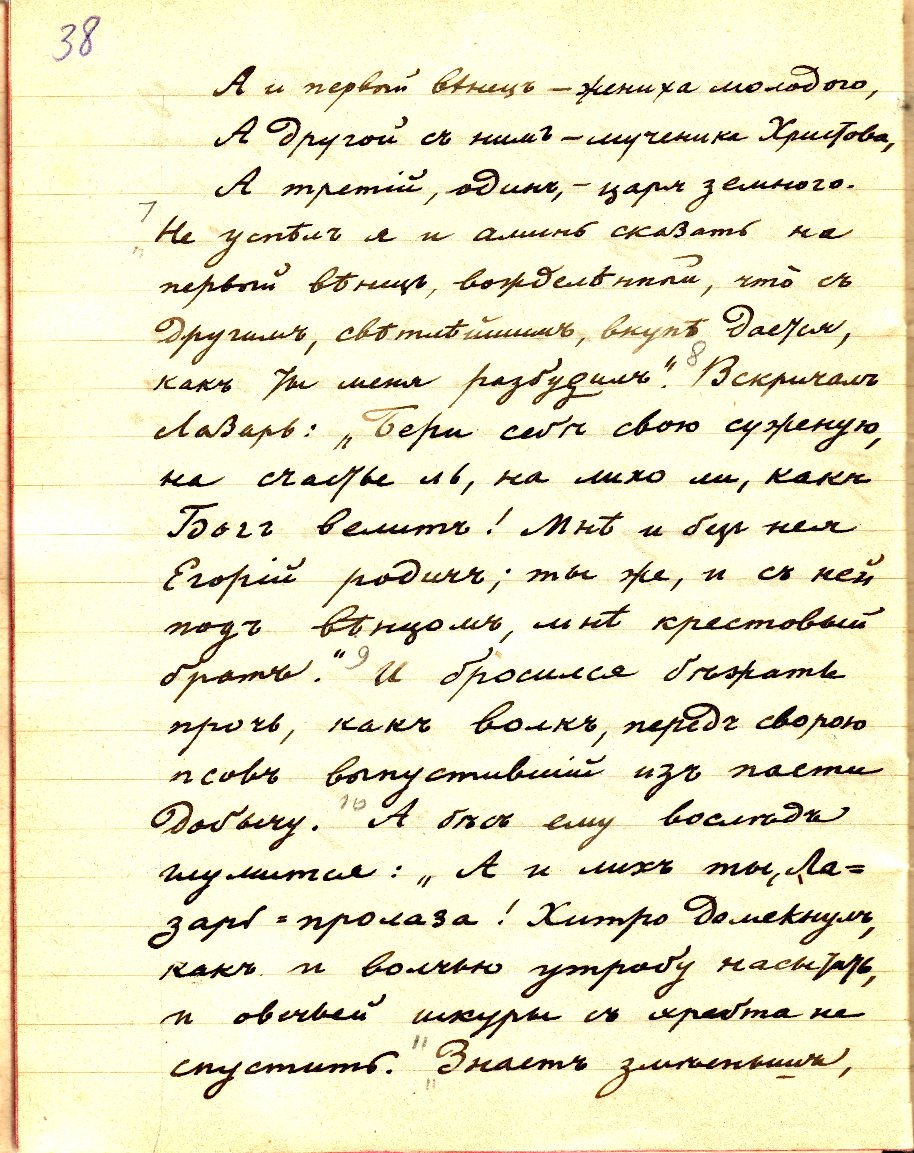 38
А и первый вѣнецъ – жениха молодого,
А другой съ нимъ – мученика Христова,
А третій, одинъ, – царя земного.
7
Не успѣлъ я и аминь сказать на
первый вѣнецъ, вожделѣнный, что́ съ
другимъ, свѣтлѣйшимъ, вкупѣ дается,
какъ ты меня разбудилъ“. 8 Вскричалъ
Лазарь: „Бери себѣ свою суженую,
на счастье ль, на лихо ли, какъ
Богъ велитъ! Мнѣ и безъ нея
Егорій родичъ; ты же, и съ ней
подъ вѣнцомъ, мнѣ крестовый
братъ.“ 9 И бросился бѣжать
прочь, какъ волкъ, передъ сворою
псовъ выпустившій изъ пасти
добычу. 10 А бѣсъ ему вослѣдъ
глумится: „А и лихъ ты, Ла=
зарь=пролаза! Хитро домекнулъ,
какъ и волчью утробу насытить,
и овечьей шкуры съ хребта не
спустить. 11 Знаетъ змѣенышъ,